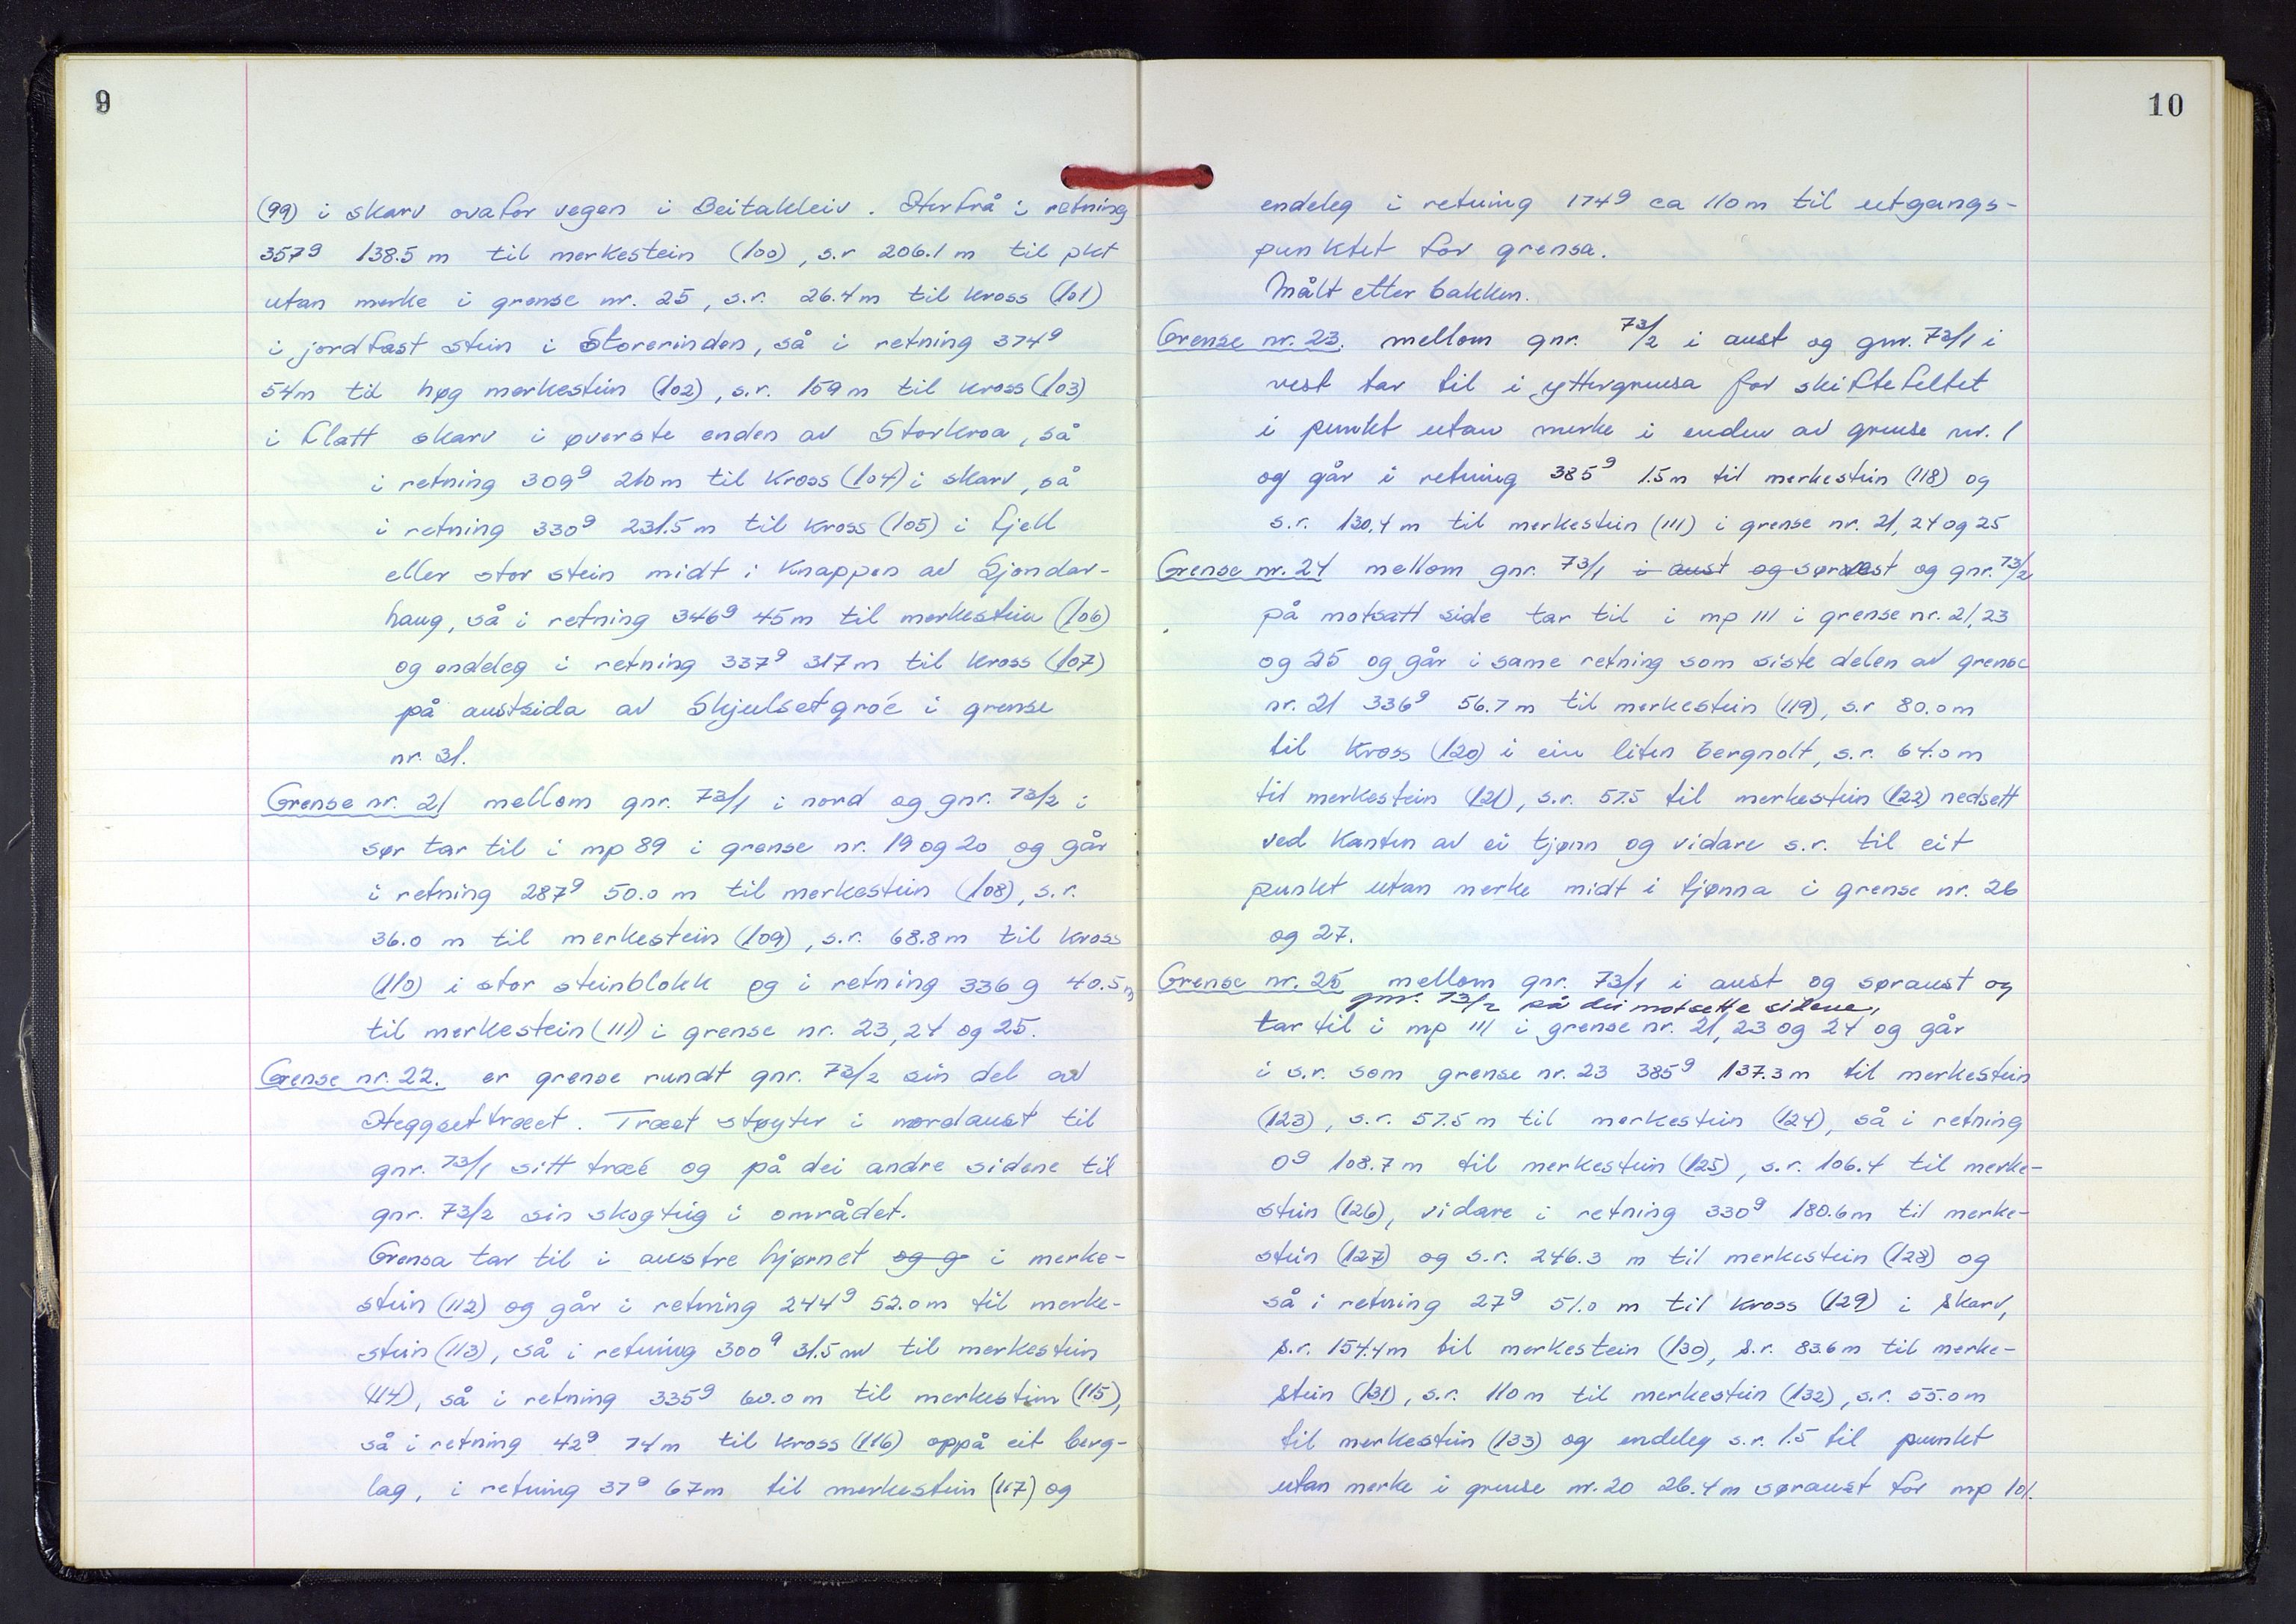 9
(99) i skarv ovafor vegen i Beitakleiv. Herfrå i retning
357g 138.5 m til merkestein (100), s.r 206.1 m til pkt
utan merke i grense nr. 25, s.r. 26.4 m til kross (101)
i jordfast stein i Storerinden, så i retning 374g
54m til høg merkestein (102), s.r. 159 m til kross (103)
i flatt skarv i øverste enden av Storkroa, så
i retning 309g 210m til kross (104) i skarv, så
i retning 330g 231.5 m til kross (105) i fjell
eller stor stein midt i knappen av Gjondar-
haug, så i retning 346g 45 m til merkestein (106)
og endeleg i retning 337g 317 m til kross (107)
på austsida av Skjulsetgróe i grense
nr. 31.
Grense nr. 21 mellom gnr. 73/1 i nord og gnr. 73/2 i
sør tar til i mp 89 i grense nr. 19 og 20 og går
i retning 287g 50.0 m til merkestein (108), s.r.
36.0 m til merkestein (109), s.r. 68.8 m til kross
(110) i stor steinblokk og i retning 336 g 40.5 m
til merkestein (111) i grense nr. 23, 24 og 25.
Grense nr. 22. er grense rundt gnr. 73/2 sin del av
Heggsettræet. Træet støyter i nordaust til
gnr. 73/1 sitt træe og på dei andre sidene til
gnr. 73/2 sin skogteig i området.
Grensa tar til i austre hjørnet og g i merke-
stein (112) og går i retning 244g 52.0 m til merke-
stein (113), så i retning 300g 31.5 m til merkestein
(114), så i retning 335g 60.0 m til merkestein (115),
så i retning 42g 74 m til kross (116) oppå eit berg-
lag, i retning 37g 67m til merkestein (117) og
10
endeleg i retning 174g ca 110 m til utgangs-
punktet for grensa.
Målt etter bakken.
Grense nr. 23. mellom gnr. 73/2 i aust og gnr. 73/1 i
vest tar til i yttergrensa for skiftefeltet
i punkt utan merke i enden av grense nr. 1
og går i retning 385g 1.5 m til merkestein (118) og
s.r. 130.4 m til merkestein (111) i grense nr. 21, 24 og 25
Grense nr. 24 mellom gnr. 73/1 i aust og sørvest og gnr. 73/2
på motsatt side tar til i mp 111 i grense nr. 21, 23
og 25 og går i same retning som siste delen av grense
nr. 21 336g 56.7 m til merkestein (119), s.r 80.0 m
til kross (120) i ein liten bergnolt, s.r. 64.0 m
til merkestein (121), s.r. 57.5 til merkestein (122) nedsett
ved kanten av ei tjønn og vidare s.r. til eit
punkt utan merke midt i tjønna i grense nr. 26
og 27.
Grense nr. 25 mellom gnr. 73/1 i aust og søraust og
gnr. 73/2 på dei motsette sidene,
tar til i mp 111 i grense nr. 21, 23 og 24 og går
i s.r. som grense nr. 23 385g 137.3 m til merkestein
(123), s.r. 57.5 m til merkestein (124), så i retning
0g 108.7 m til merkestein (125), s.r. 106.4 til merke-
stein (126), vidare i retning 330g 180.6m til merke-
stein (127) og s.r. 246.3 m til merkestein (128) og
så i retning 27g 51.0 m til kross (129) i skarv,
s.r. 154.4m til merkestein (130), s.r. 83.6 m til merke-
stein (131), s.r. 110 m til merkestein (132), s.r. 55.0 m
til merkestein (133) og endeleg s.r. 1.5 til punkt
utan merke i grense nr. 20 26.4 m søraust for mp 101.